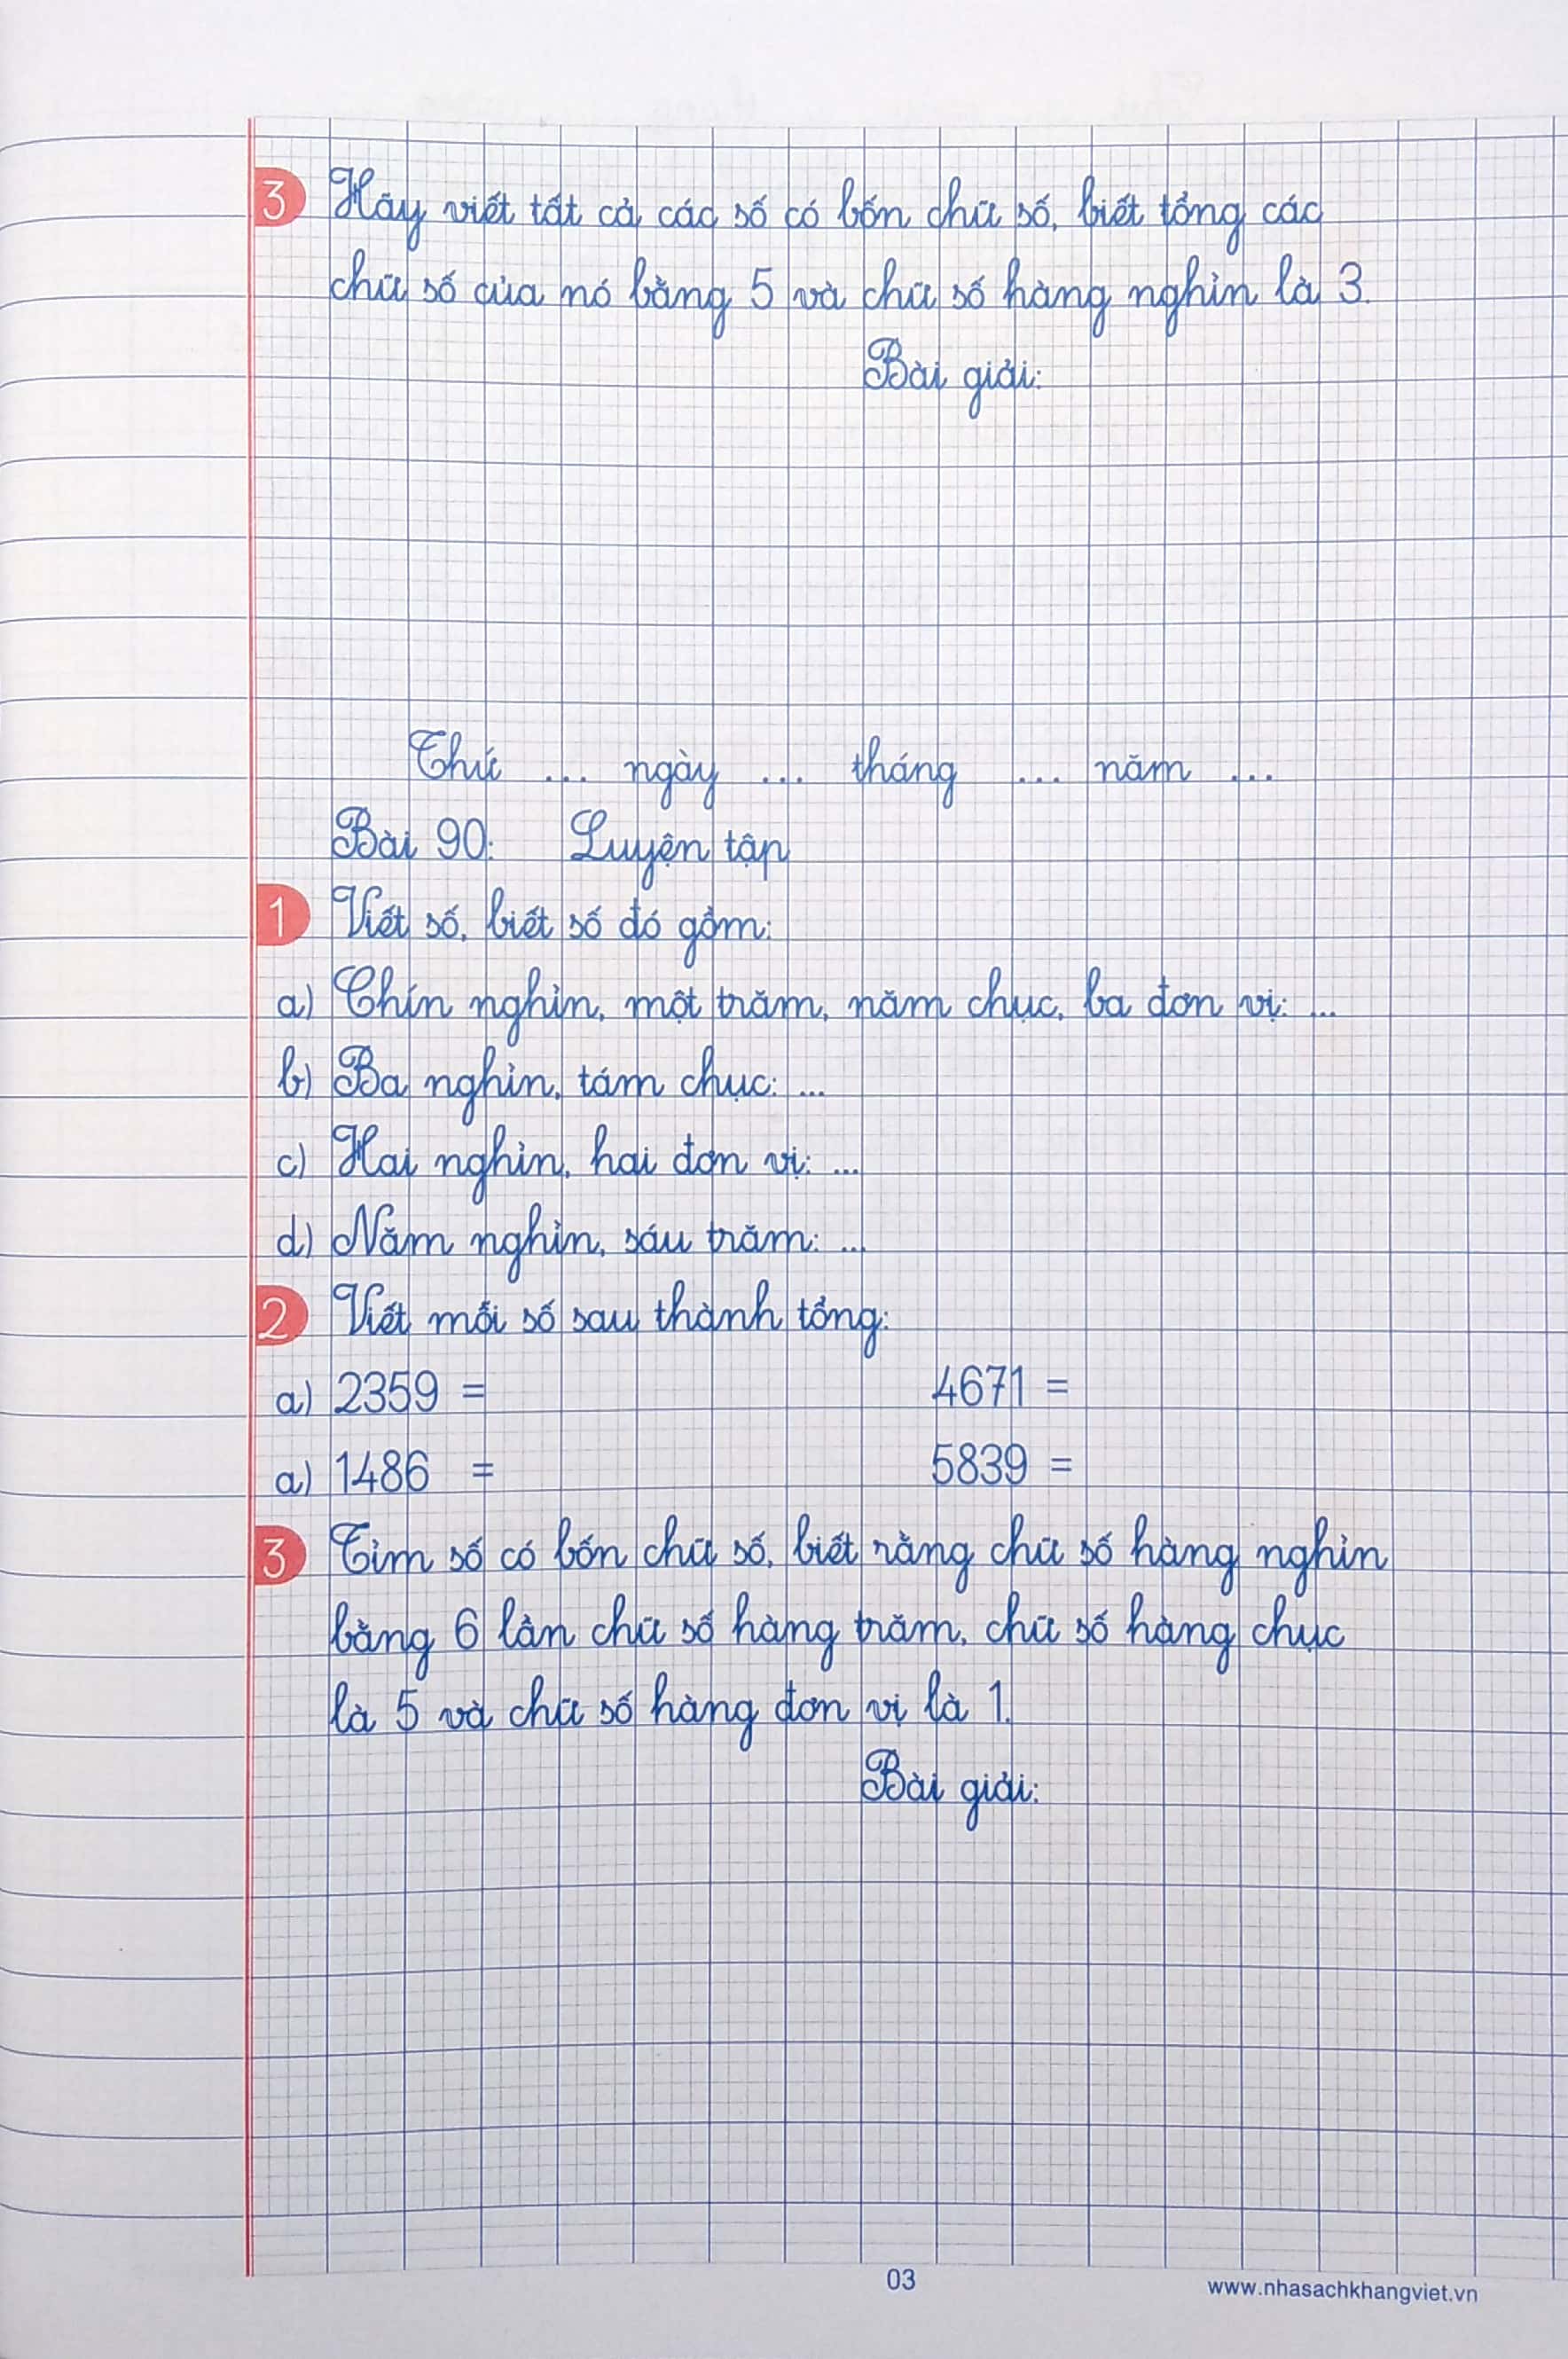 3 Hãy viết tất cả các số có bốn chữ số, biết tổng các
chữ số của nó bằng 5 và chữ số hàng nghìn là 3.
Bài giải:
Thứ ... ngày ... tháng ... năm ...
Bài 90: Luyện tập
1 Viết số, biết số đó gồm:
a) Chín nghìn, một trăm, năm chục, ba đơn vị: ...
b) Ba nghìn, tám chục: ...
c) Hai nghìn, hai đơn vị: ...
d) Năm nghìn, sáu trăm: ...
2 Viết mỗi số sau thành tổng:
a) 2359 = 4671 =
a) 1486 = 5839 =
3 Tìm số có bốn chữ số, biết rằng chữ số hàng nghìn
bằng 6 lần chữ số hàng trăm, chữ số hàng chục
là 5 và chữ số hàng đơn vị là 1.
Bài giải:
03
www.nhasachkhangviet.vn